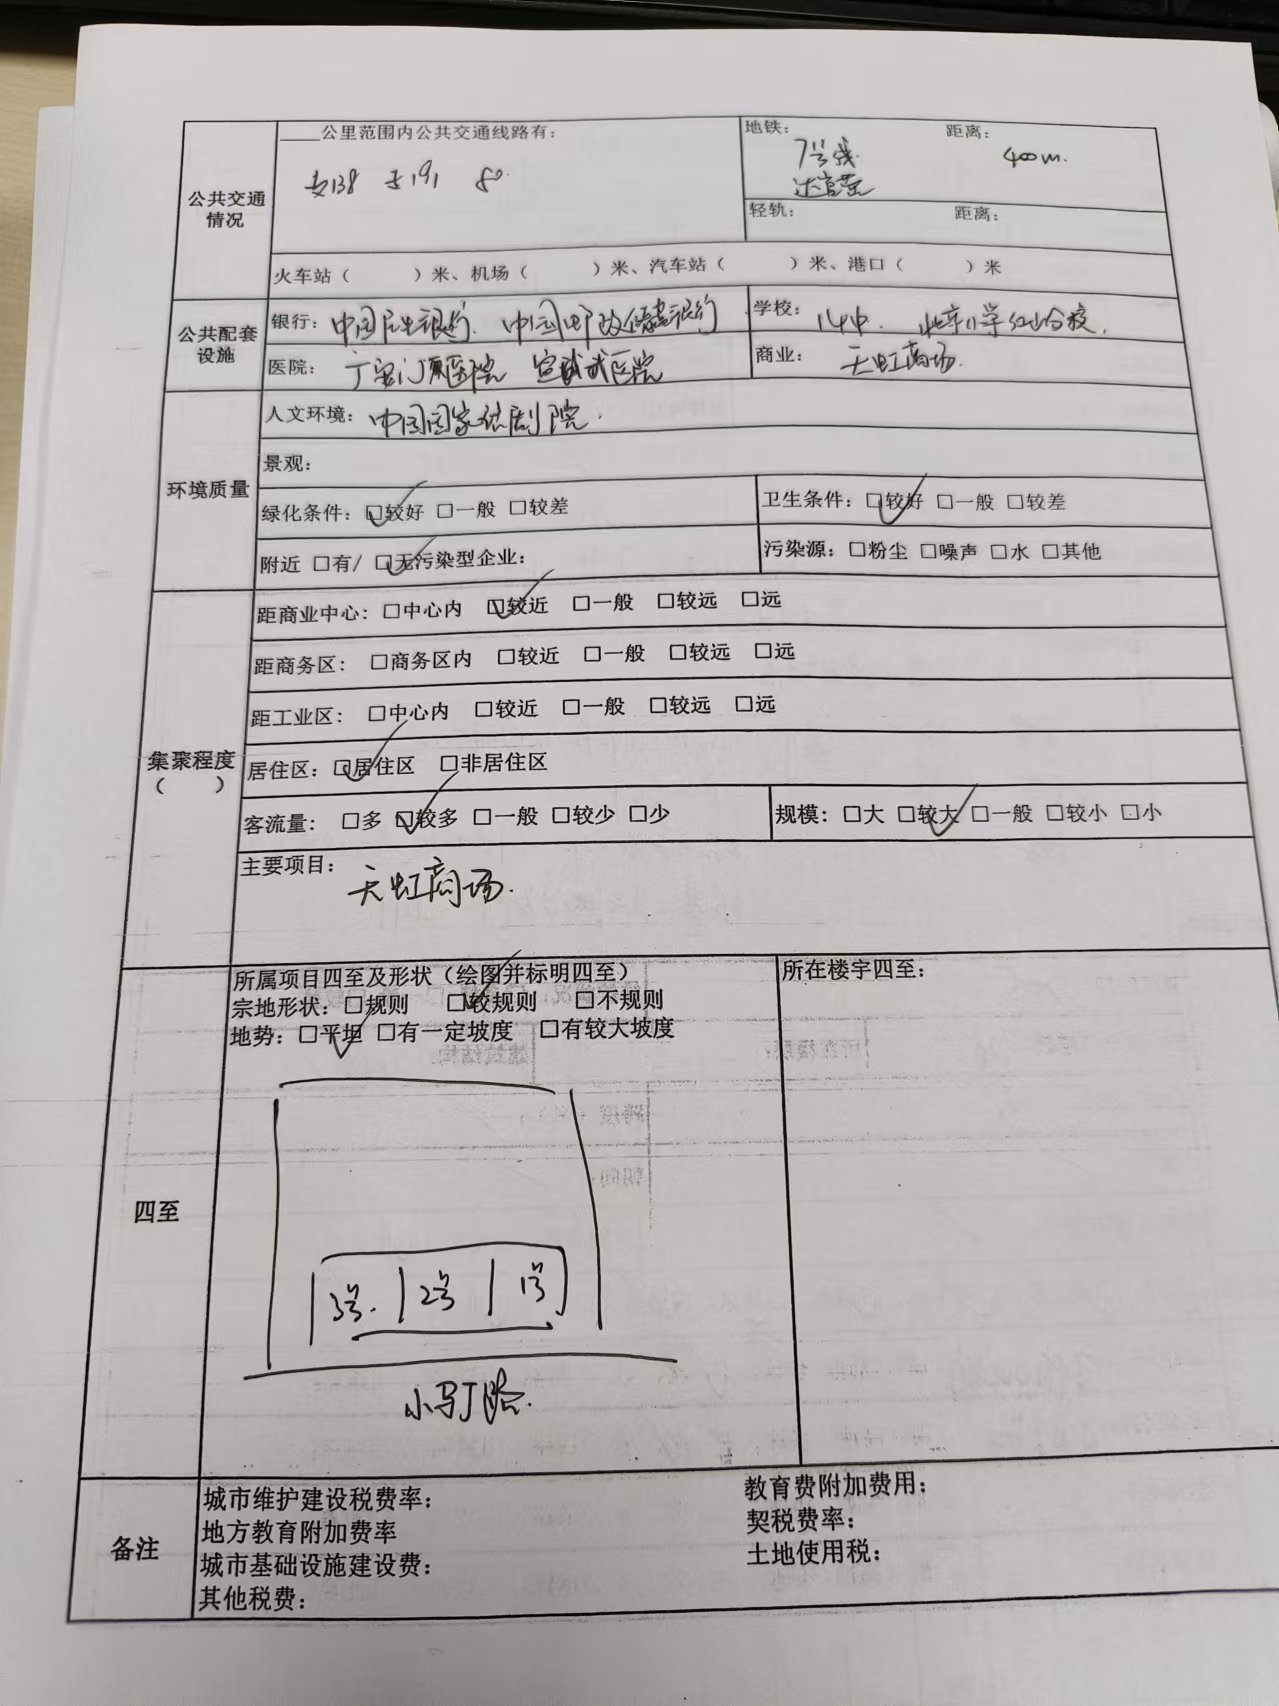 公共交通情况
____公里范围内公共交通线路有：
专138 专191 80.
地铁： 7号线 达官营 距离： 400m.
轻轨： 距离：
火车站（ ）米、机场（ ）米、汽车站（ ）米、港口（ ）米
公共配套设施
银行：中国民生银行. 中国邮政储蓄银行
学校： 14中. 北京小学红山分校.
医院：广安门医院 宣武医院
商业： 天虹商场.
环境质量
人文环境：中国国家话剧院.
景观：
绿化条件：☑较好 □一般 □较差
卫生条件：☑较好 □一般 □较差
附近 □有/ ☑无污染型企业：
污染源：□粉尘 □噪声 □水 □其他
集聚程度（ ）
距商业中心：□中心内 ☑较近 □一般 □较远 □远
距商务区： □商务区内 □较近 □一般 □较远 □远
距工业区： □中心内 □较近 □一般 □较远 □远
居住区：☑居住区 □非居住区
客流量： □多 ☑较多 □一般 □较少 □少
规模：□大 ☑较大 □一般 □较小 □小
主要项目： 天虹商场.
四至
所属项目四至及形状（绘图并标明四至）
宗地形状：□规则 ☑较规则 □不规则
地势：☑平坦 □有一定坡度 □有较大坡度
3号. 2号 1号
小马厂路.
所在楼宇四至：
备注
城市维护建设税费率：
教育费附加费用：
地方教育附加费率
契税费率：
城市基础设施建设费：
土地使用税：
其他税费：